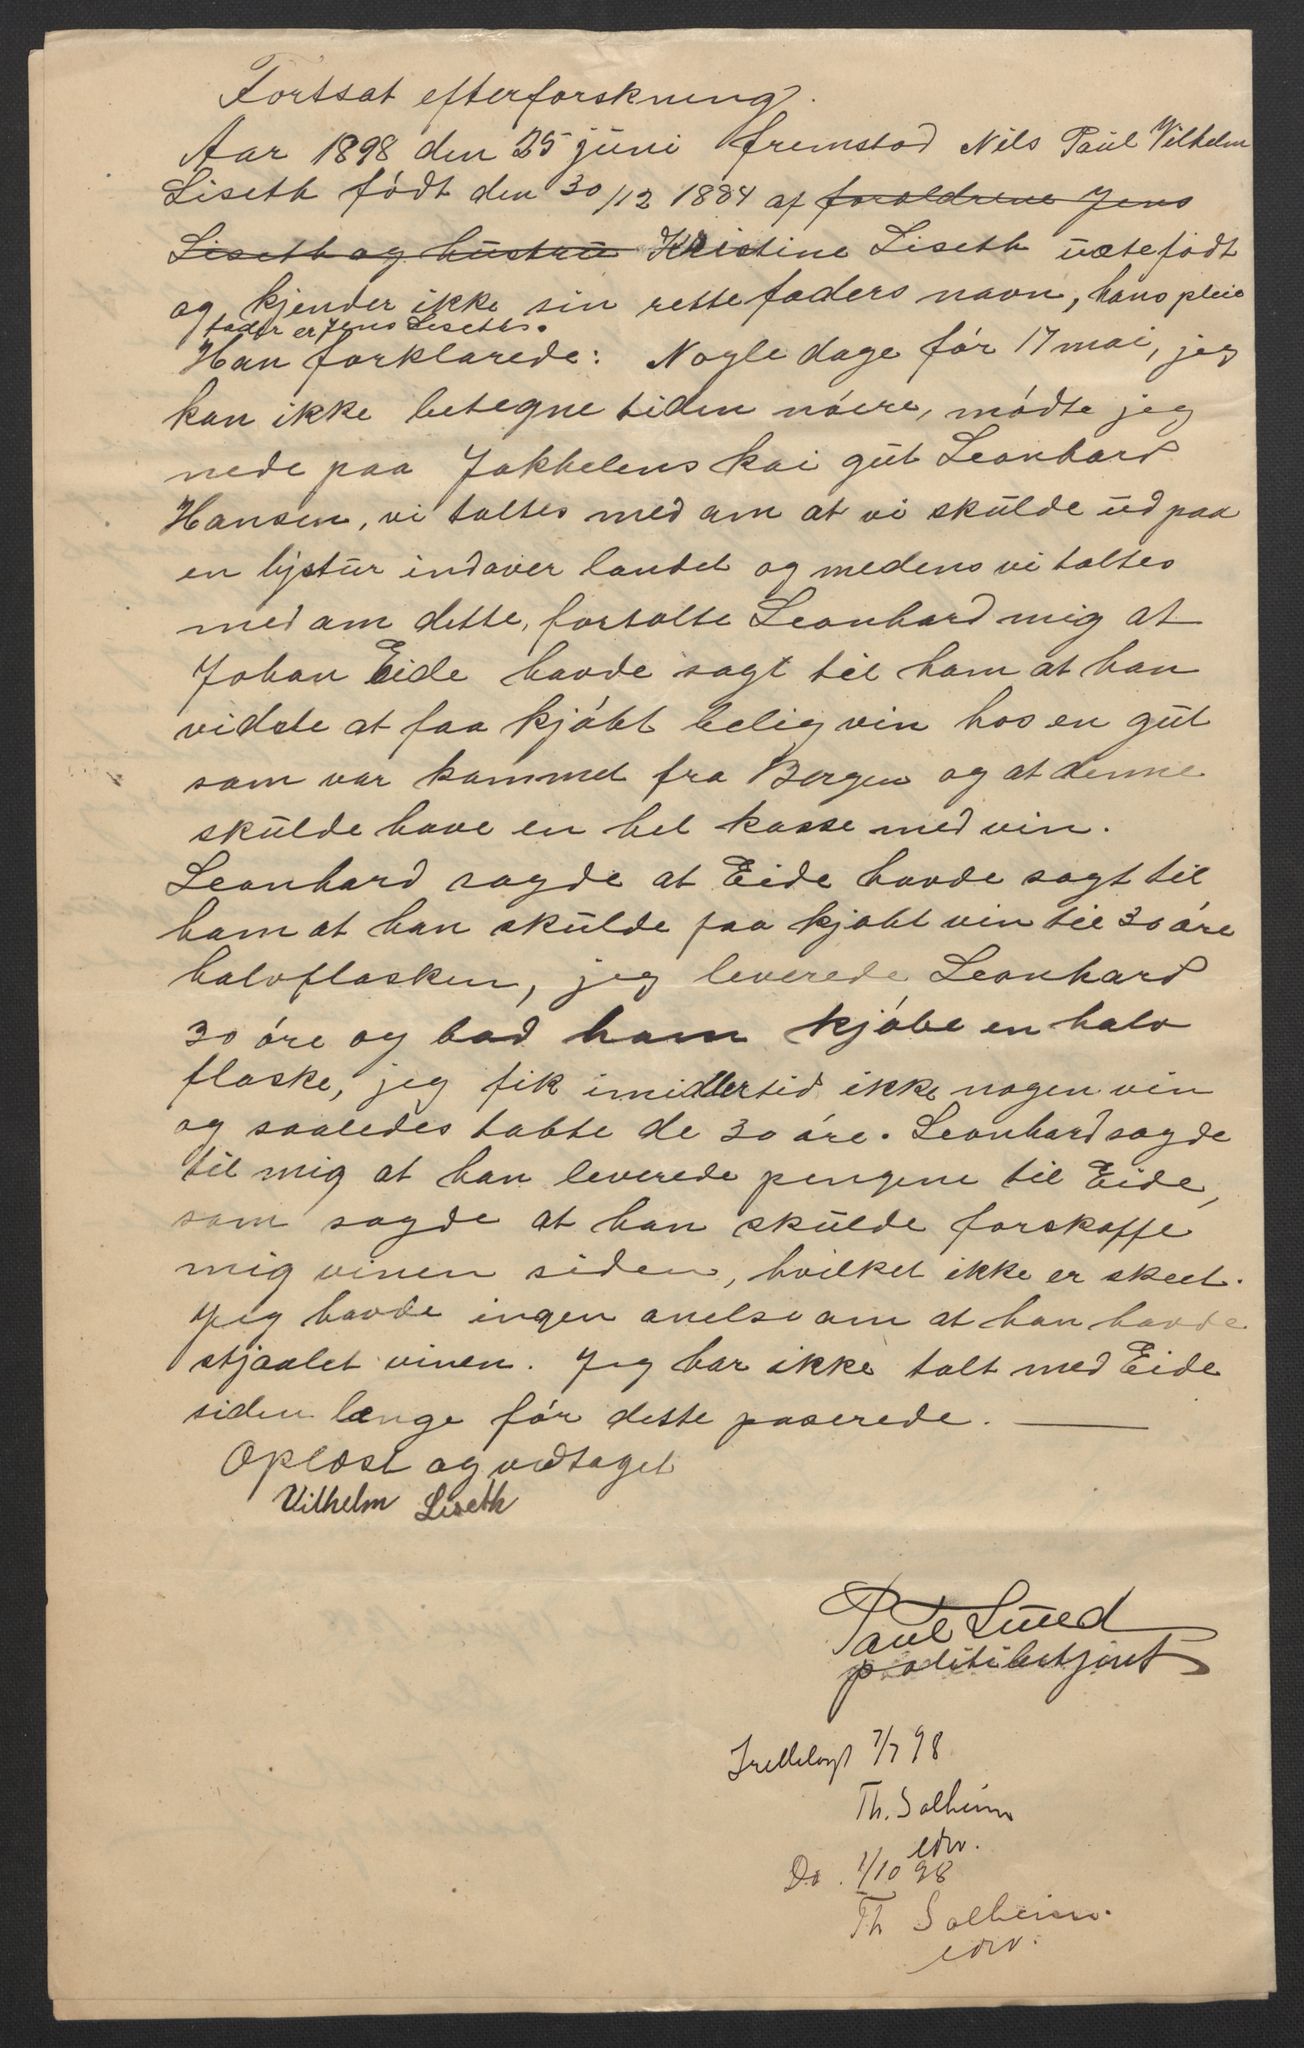 Fortsat efterforskning.
Aar 1898 den 25 juni fremstod Nils Paul Vilhelm
Liseth født den 30/12 1884 af foraldrene Jens
Liseth og hustru Kristine Liseth uætefødt
og kjender ikke sin rette faders navn, hans pleie
fader er Jens Liseth.
Han forklarede: Nogle dage før 17 mai, jeg
kan ikke betegne tiden nóiere, mødte jeg
nede paa Jakhelens kai gut Leonhard
Hansen, vi taltes med om at vi skulde ud paa
en lystur indover landet og medens vi taltes
med om dette, fortalte Leonhard mig at
Johan Eide havde sagt til ham at han
vidste at faa kjøbt belig vin hos en gut
som var kommet fra Bergen og at denne
skulde have en hel kasse med vin.
Leonhard sagde at Eide havde sagt til
ham at han skulde faa kjøbt vin til 30 øre
halvflasken, jeg leverede Leonhard
30 øre og bad ham kjøbe en halv
flaske, jeg fik imidlertid ikke nogen vin
og saaledes tabte de 30 øre. Leonhard sagde
til mig at han leverede pengene til Eide,
som sagde at han skulde forskaffe
mig vinen siden, hvilket ikke er skeet.
Jeg havde ingen anelse om at han havde
stjaalet vinen. Jeg har ikke talt med Eide
siden længe før dette paserede.
Oplæst og vedtaget
Vilhelm Liseth
Paul Lund
politibetjent
Irettelagt 7/7 98
Th. Solheim
edv.
Do. 1/10 98
Th Solheim.
edv.